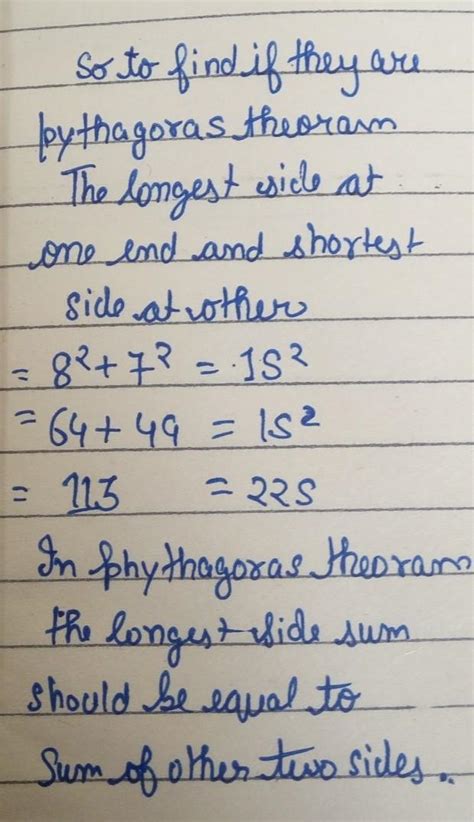 So to find if they are
pythagoras theoram
The longest side at
one end and shortest
side at other
= 8² + 7² = 15²
= 64 + 49 = 15²
= 113 = 225
In phythagoras theoram
the longest side sum
should be equal to
Sum of other two sides..